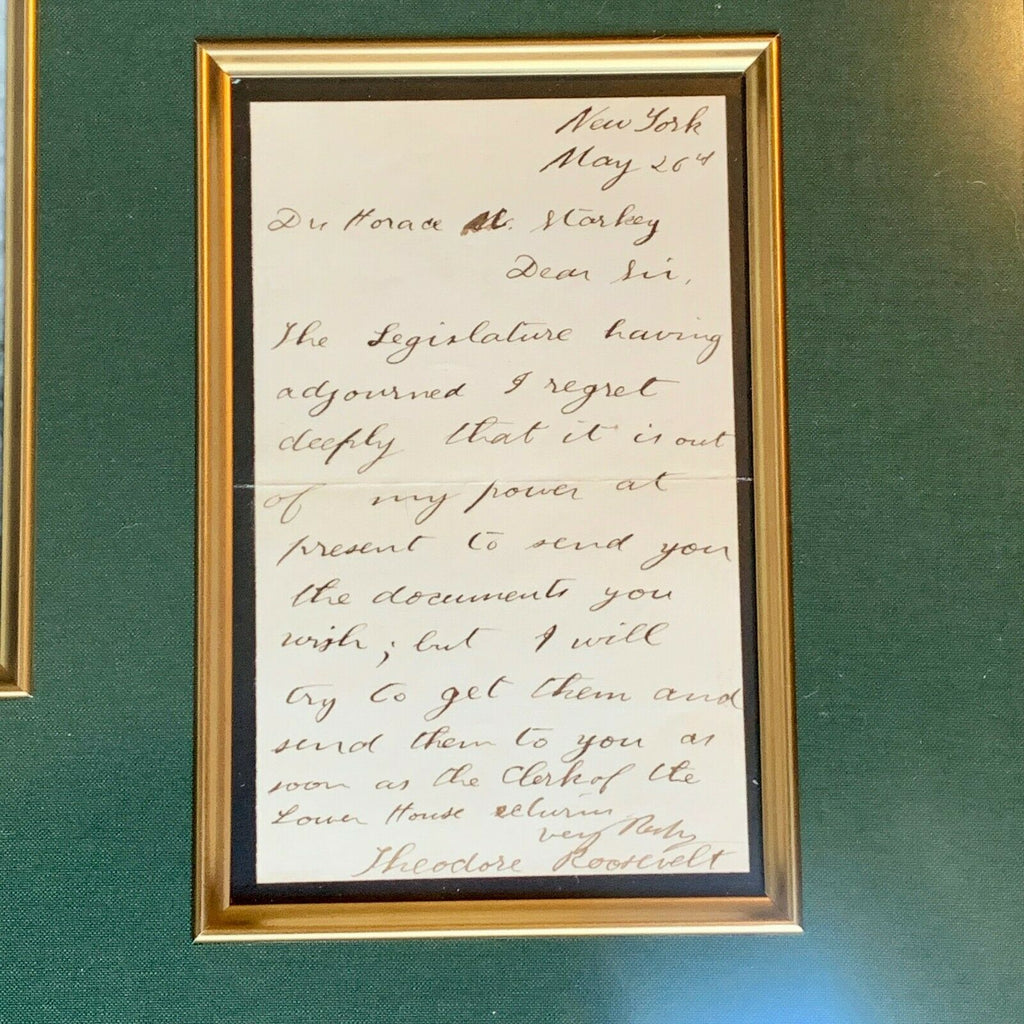 New York
May 26th
Dr. Horace M. Starkey
Dear Sir,
The Legislature having
adjourned I regret
deeply that it is out
of my power at
present to send you
the documents you
wish; but I will
try to get them and
send them to you as
soon as the Clerk of the
Lower House returns
very
Theodore Roosevelt